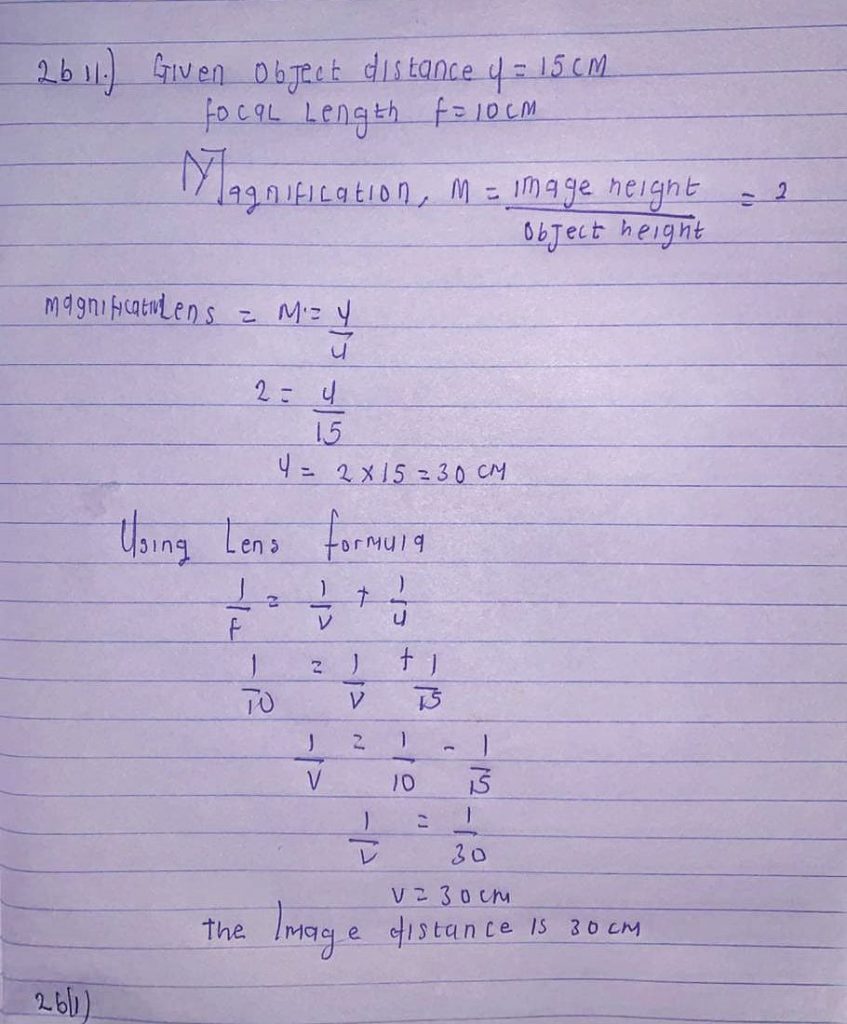 2b 11.) Given object distance u = 15cm
focal Length f = 10cm
Magnification, M = image height / object height = 2
magnification Lens = M = v / u
2 = v / 15
v = 2 x 15 = 30 cm
Using Lens formula
1/f = 1/v + 1/u
1/10 = 1/v + 1/15
1/v = 1/10 - 1/15
1/v = 1/30
v = 30cm
the Image distance is 30cm
2b(1)